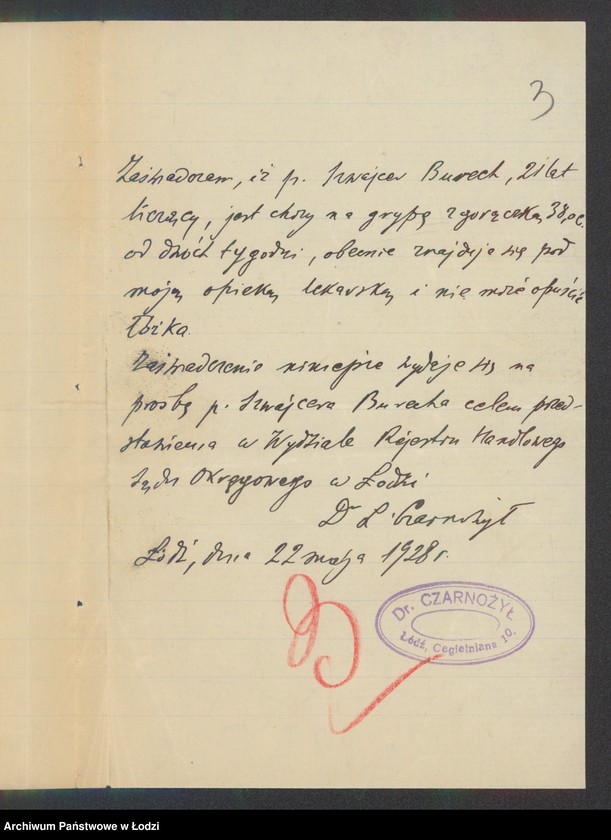 3
Zaświadczam, iż p. Szwajcer Burech, 21 lat
liczący, jest chory na grypę z gorączką 38,0c.
od dwóch tygodni, obecnie znajduje się pod
moją opieką lekarską i nie może opuścić
łóżka.
Zaświadczenie niniejsze wydaje się na
prośbę p. Szwajcera Burecha celem przed-
stawienia w Wydziale Rejestru Handlowego
Sądu Okręgowego w Łodzi
Dr L. Czarnożył
Łódź, dnia 22 maja 1928 r.
Dr. CZARNOŻYŁ
Łódź, Cegielniana 10.
Archiwum Państwowe w Łodzi